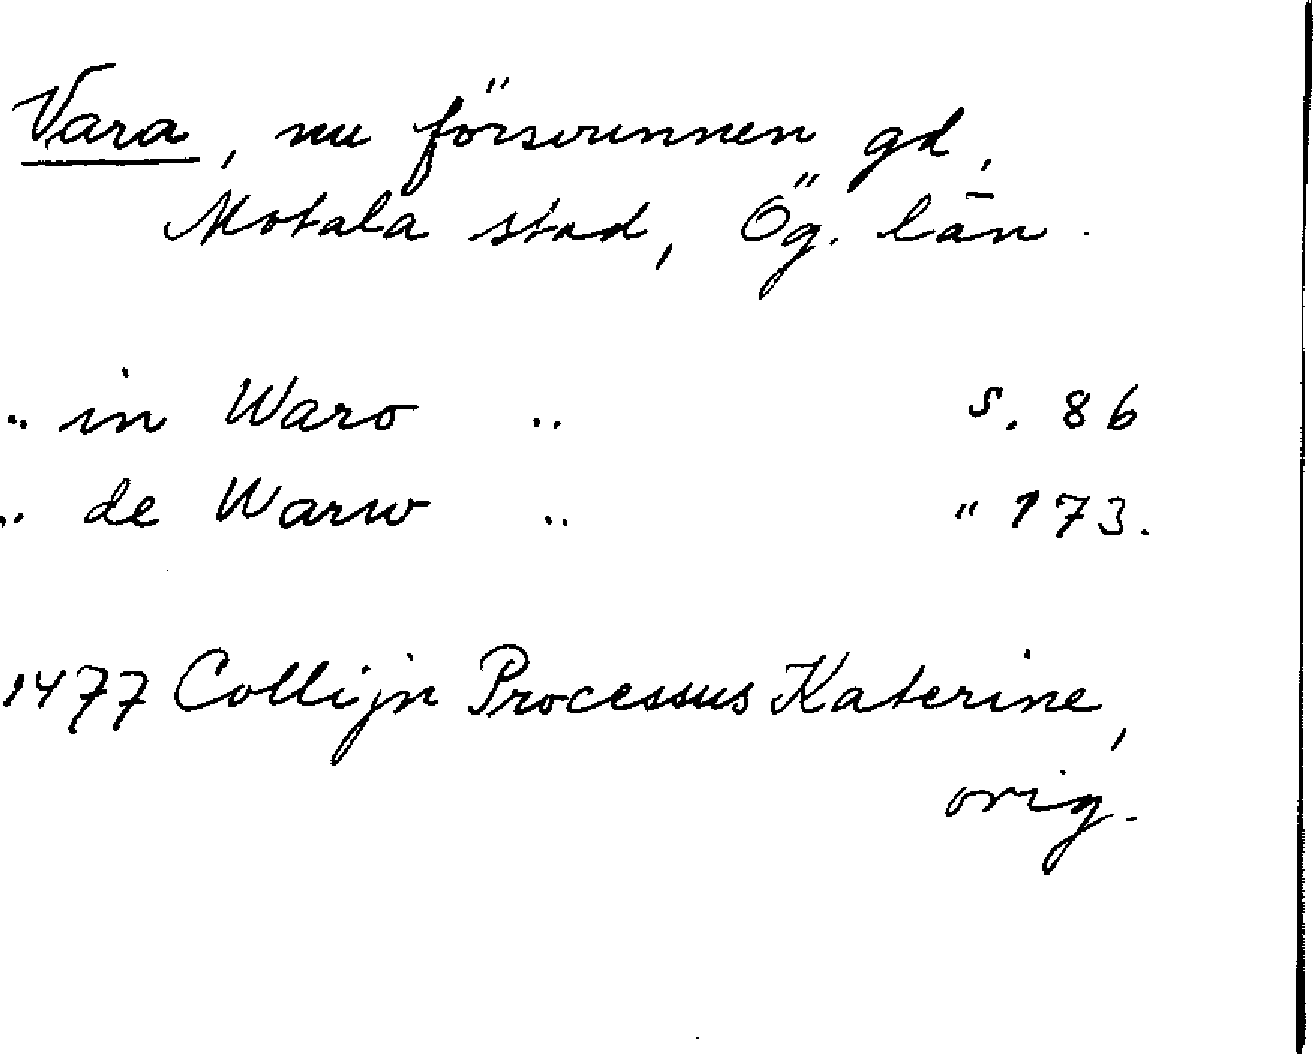 Vara, nu försvunnen gd,
Motala stad, Ög. län.
.. in Waro .. s. 86
.. de Warw .. " 173.
1477 Collijn Processus Katerine,
orig.